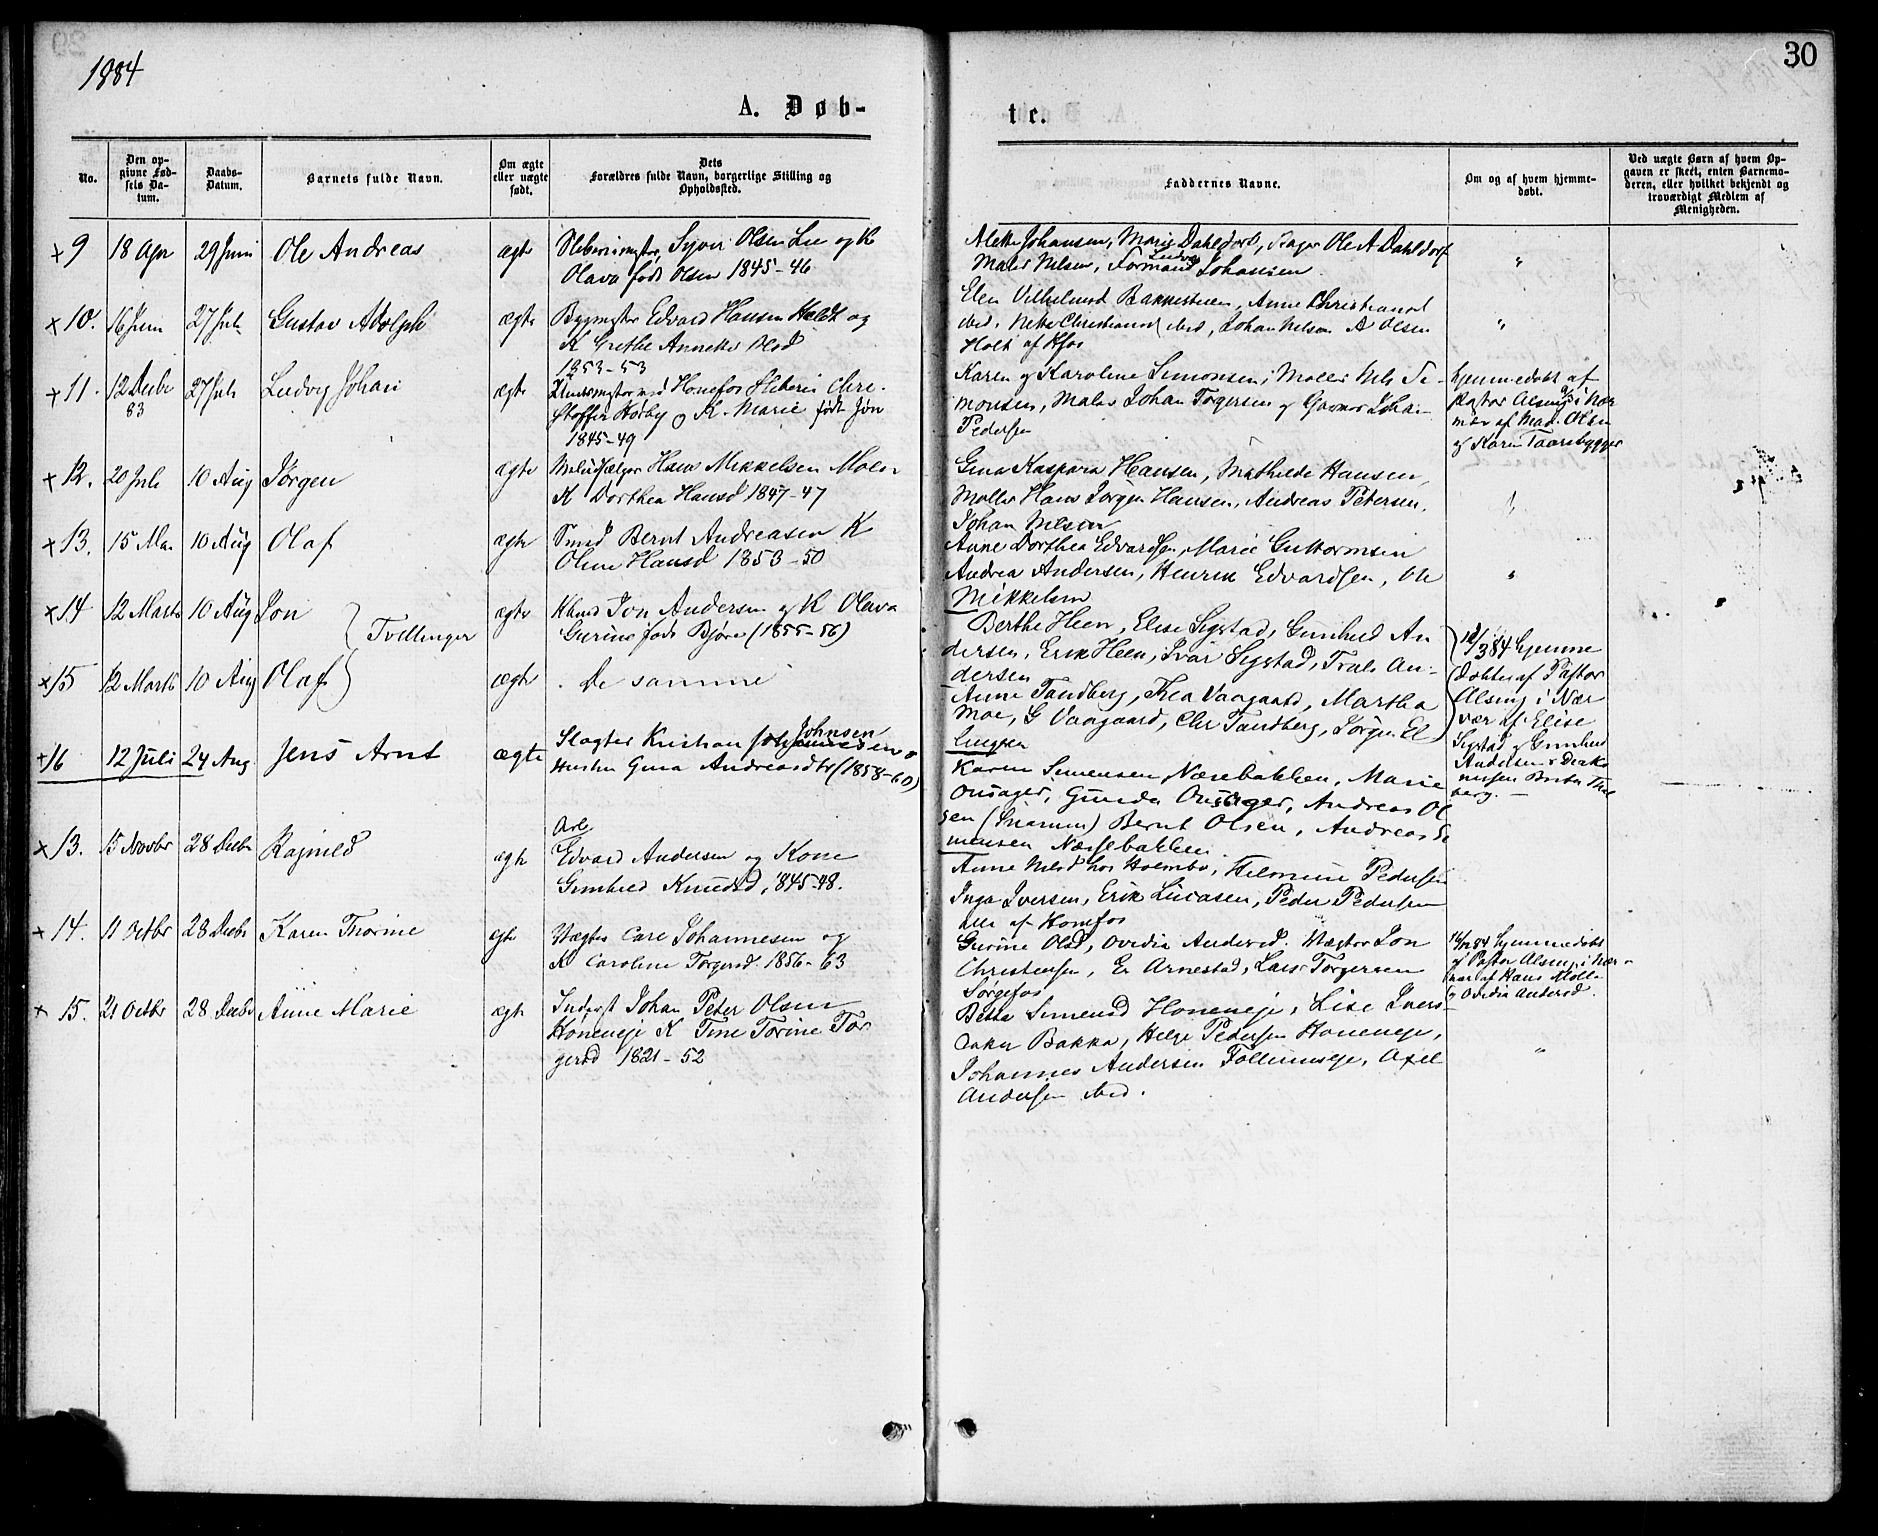 1884
30
A. Døb-
te.
No.
Den op-
givne Fød-
sels Da-
tum.
Daabs-
Datum.
Barnets fulde Navn.
Om ægte
eller uægte
født.
Dets
Forældres fulde Navn, borgerlige Stilling og
Opholdssted.
Faddernes Navne.
Om og af hvem hjemme-
døbt.
Ved uægte Børn af hvem Op-
gaven er skeet, enten Barnemo-
deren, eller hvilket bekjendt og
troværdigt Medlem af
Menigheden.
+ 9 18 Apr 29 Juni Ole Andreas ægte Sliberimester Syver Olsen Lie og K
Olava født Olsen 1845-46
Alette Johansen, Marie Dahldorf, Bager Ole A Dahldorf
Maler Nilsen, Formand Ludvig Johansen
"
+ 10. 16 Juni 27 Juli Gustav Adolph ægte Bygmester Edvard Hansen Holdt og
K Grethe Annette Olsd
1853-53
Elen Vilhelmsd Bakkestuen, Anne Christiansd
ibid, Nette Christiansd ibid, Johan Nilsen A Olsen
Holt af Hfos
"
+ 11. 12 Decbr 83 27 Juli Ludvig Johan ægte ved Honefos Sliberi Chri-
stoffer Hørby og K. Marie født Jøn
1845-49
Karen og Karoline Simonsen, Møller Nils Si-
monsen, Maler Johan Torgersen og Garver Johan
Pedersen
hjemmedøbt af
Pastor Alsing i Nær-
vær af Mad. Olsen
og Karen Taarnbygger
+ 12. 20 Juli 10 Aug Jörgen ægte Melhandler Hans Mikkelsen Moen
K Dorthea Hansd 1847-47
Gina Kaspara Hansen, Mathilde Hansen,
Møller Hans Jørgen Hansen, Andreas Petersen,
Johan Nilsen
"
+ 13. 15 Mai 10 Aug Olaf ægte Smed Bernt Andreasen K
Oline Hansd 1853-50
Anne Dorthea Edvardsen, Marie Guttormsen
Andrea Andersen, Henrik Edvardsen, Ole
Mikkelsen
"
+ 14 12 Marts 10 Aug Jon } Tvillinger ægte Jon Andersen og K Olava
Gurine født Björe (1855-56)
Berthe Heen, Elise Sigstad, Gunhild An-
dersen, Erik Heen, Ivar Sigstad, Trul An-
dersen
18/3 84 hjemme
døbte af Pastor
Alsing i Nær
vær af Elise
Sigstad og Gunhild
Andersen & Diako
nissen Berta Thal
berg. -
+ 15 12 Marts 10 Aug Olaf ægte . De samme
Anne Tandberg, Thea Vaagaard, Martha
Moe, G Vaagaard, Chr Tandberg, Jörgen El
lingsen
+ 16 12 Juli 24 Aug. Jens Arnt ægte Slagter Kristian Johannesen Johnsen &
Hustru Gina Andreasdtr (1858-60)
Karen Simensen Næsebakken, Marie
Onsager, Gunda Onsager, Andreas Ol
sen (Snarum) Bernt Olsen, Andreas Si
mensen Næsebakken
+ 13. 15 Novbr 28 Decbr Ragnild ægte Arb
Edvard Andersen og Kone
Gunhild Knudsd, 1845-48.
Anne Nilsd hos Holmbo, Helmine Pedersen
Inga Iversen, Erik Lucasen, Peder Pedersen
alle af Honefos
+ 14. 11 Octbr 28 Decbr Karen Thorine ægte Vægter Carl Johannesen og
K Caroline Torgersd. 1856-63
Gurine Olsd, Ovidia Andersd. Vægter Jon
Christensen, Er Arnestad, Lars Torgersen
Sørgefos
16/12 84 hjemmedøbt
af Pastor Alsing i Nær-
vær af Hans Møller
og Ovidia Andersd.
+ 15. 21 Octbr 28 Decbr Anne Marie ægte Inderst Johan Peter Olsen
Honeneje K Tine Torine Tor-
gersd 1821-52
Betta Simensd Honeneje, Lise Ivers-
daker Bakka, Helge Pedersen Honeneje,
Johannes Andersen Follumseje, Axel
Andersen ibid.
"